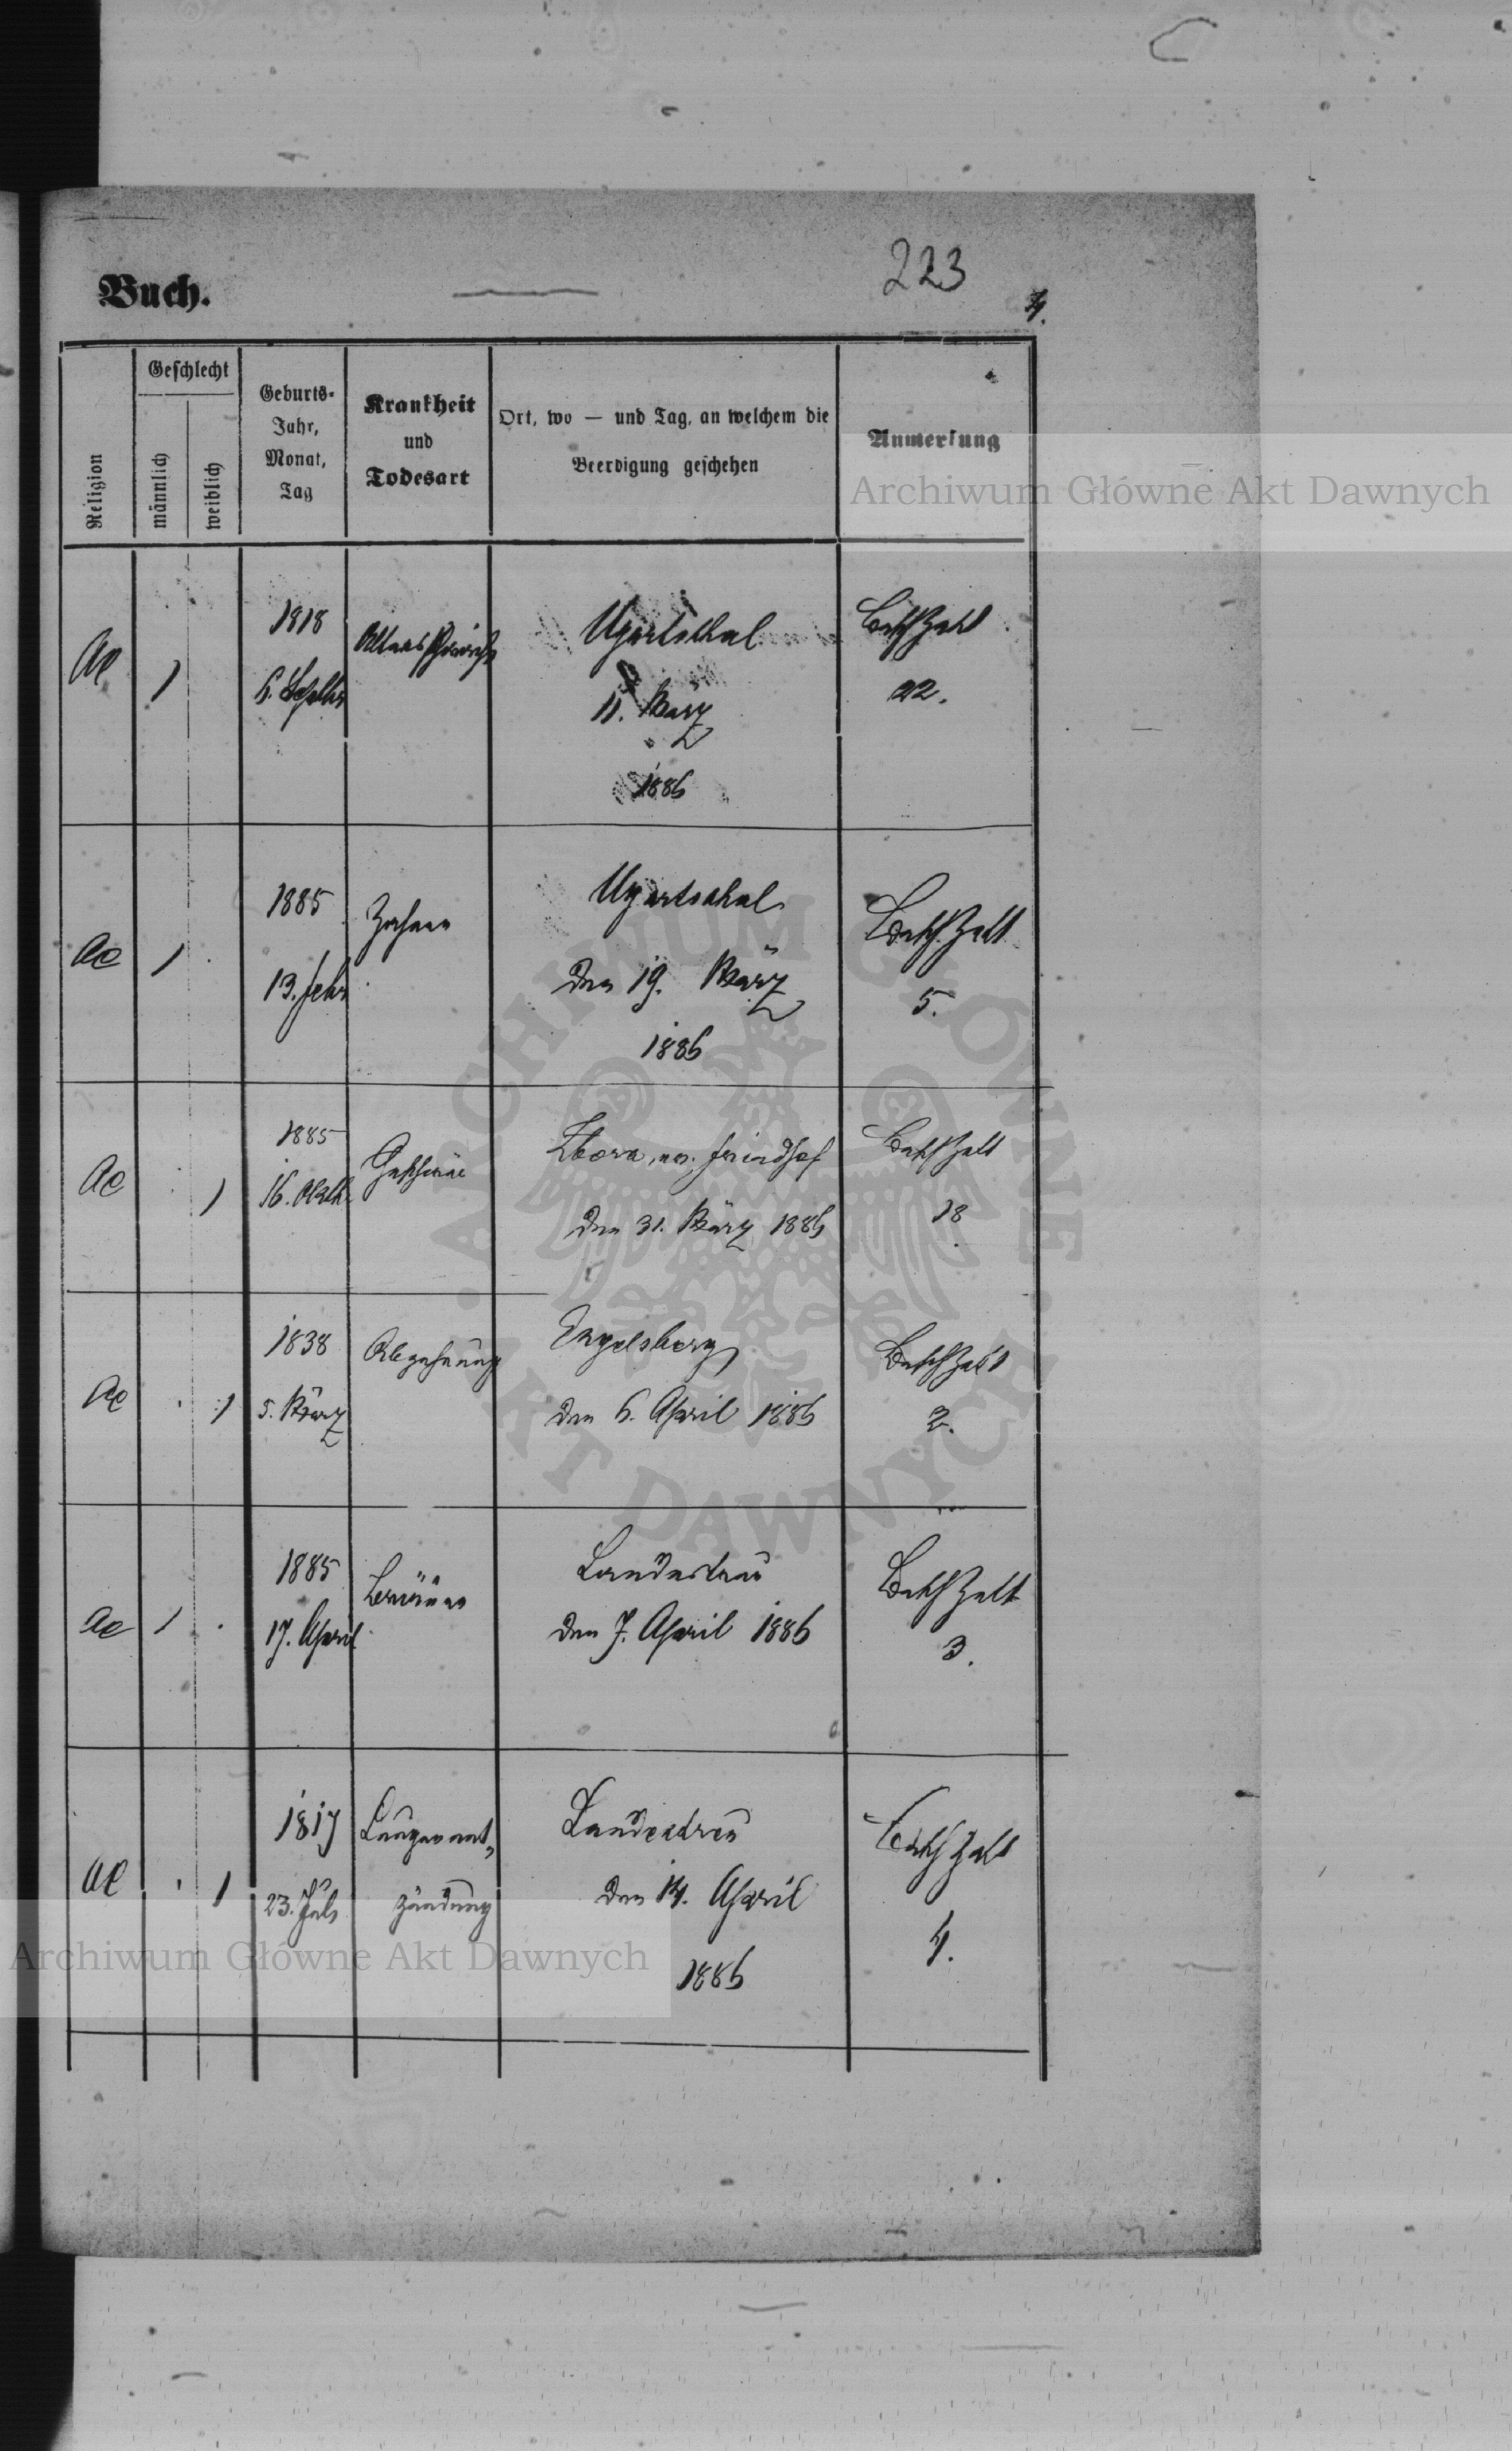 Buch.
223
4.
Religion
Geschlecht
männlich
weiblich
Geburts-
Jahr,
Monat,
Tag
Krankheit
und
Todesart
Ort, wo — und Tag, an welchem die
Beerdigung geschehen
Anmerkung
Archiwum Główne Akt Dawnych
AC 1 1818
Ugartsthal
11. März
22.
1886
AC 1 1885
Zahnen
Ugartsthal
den 19. März
13. Febr
5.
1886
AC 1 1885
16.
den 31. März 1886
18
AC 1 1838
5. März
Abzehrung
Engelsberg
den 6. April 1886
2.
AC 1 1885
17. April
Bräune
Landestreu
den 7. April 1886
3.
AC 1 1817
23. Juli
Lungenent-
zündung
Landestreu
den 14. April
4.
1886
Archiwum Główne Akt Dawnych
ARCHIWUM GŁÓWNE AKT DAWNYCH